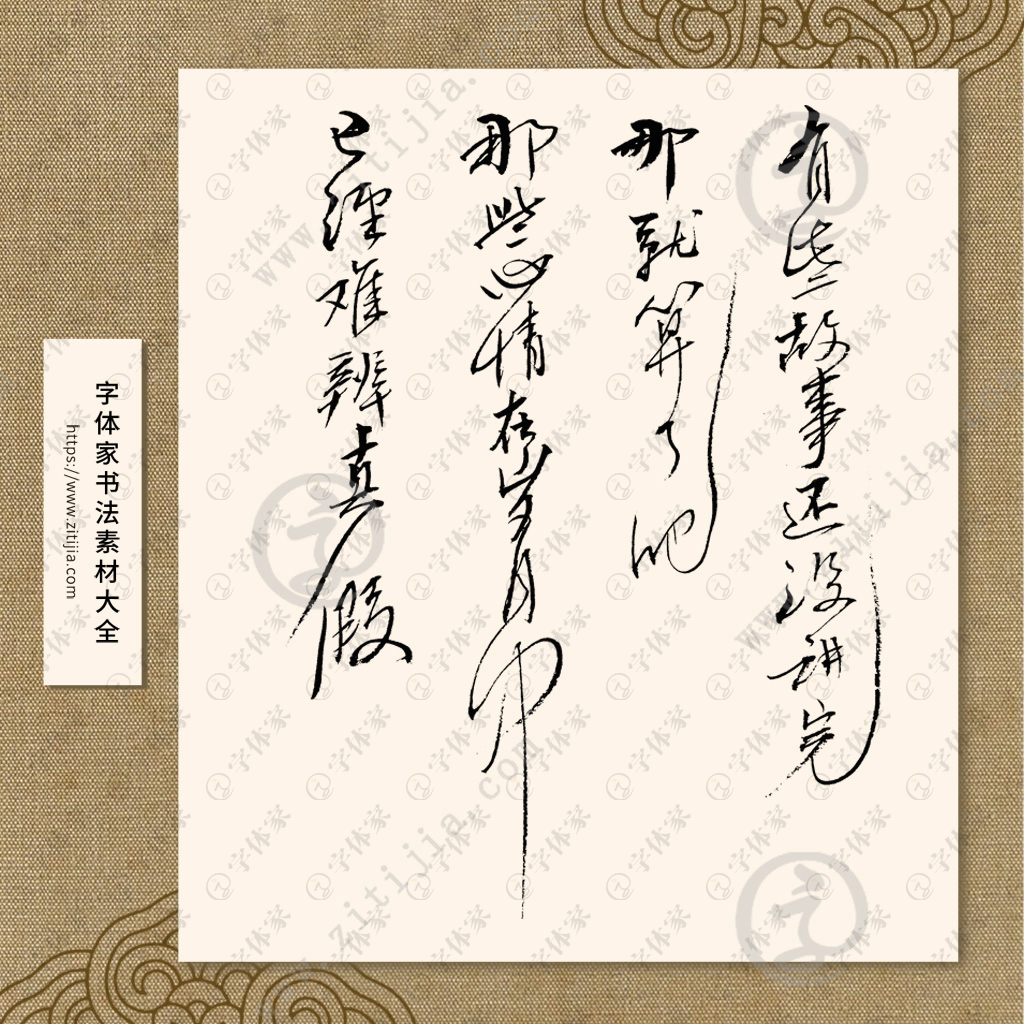 有些故事还没讲完
那就算了吧
那些心情在岁月中
已经难辨真假
字体家书法素材大全
https://www.zitijia.com